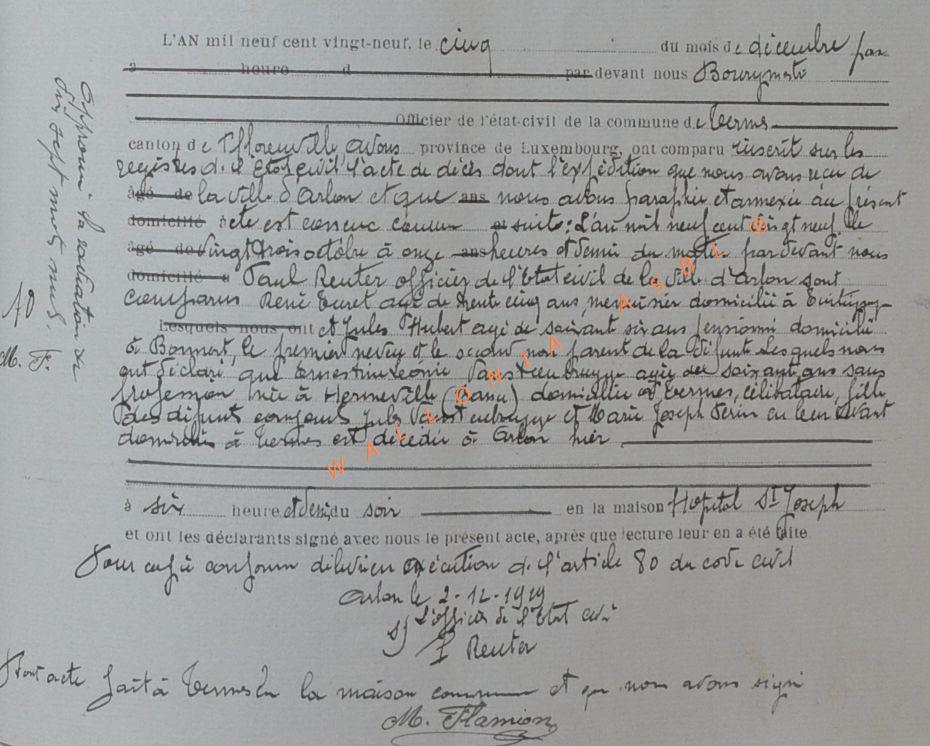 L'AN mil neuf cent vingt-neuf, le cinq du mois de décembre par
à heure d par devant nous Bourgmestre
Officier de l'état-civil de la commune de Termes
canton de Florenville, avons province de Luxembourg, ont comparu inscrit sur les
registres de l'Etat civil l'acte de décès dont l'expédition que nous avons reçu de
âgé de la ville d'Arlon et que ans nous avons paraphée et annexée au présent
domicilié à été est conçu comme et suit: L'an mil neuf cent vingt neuf, le
âgé de vingt trois octobre à onze ans heures et demie du matin par devant nous
domicilié à Paul Reuter officier de l'Etat civil de la ville d'Arlon sont
comparus René âgé de trente cinq ans, menuisier domicilié à
Lesquels nous ont et Jules Hubert âgé de soixante six ans pensionné domicilié
à Bonnert, le premier neveu et le second non parent de la défunte Lesquels nous
ont déclaré que Ernestine Léonie âgée de soixante ans sans
profession née à Herneville ( ) domiciliée à Termes, célibataire, fille
des défunts conjoints Jules et Marie Joseph en leur vivant
domiciliés à Termes est décédée à Arlon hier
à six heure et demie du soir en la maison Hopital St Joseph
et ont les déclarants signé avec nous le présent acte, après que lecture leur en a été faite
Pour copie conforme délivrée en exécution de l'article 80 du code civil
Arlon le 2-12-1929
s) L'officier de l'Etat civil
P Reuter
Dont acte fait à Termes en la maison commune et que nous avons signé
M. Flamion
Approuvé la radiation de
dix sept mots nuls.
M. F.
WALLONIA ASBL ©